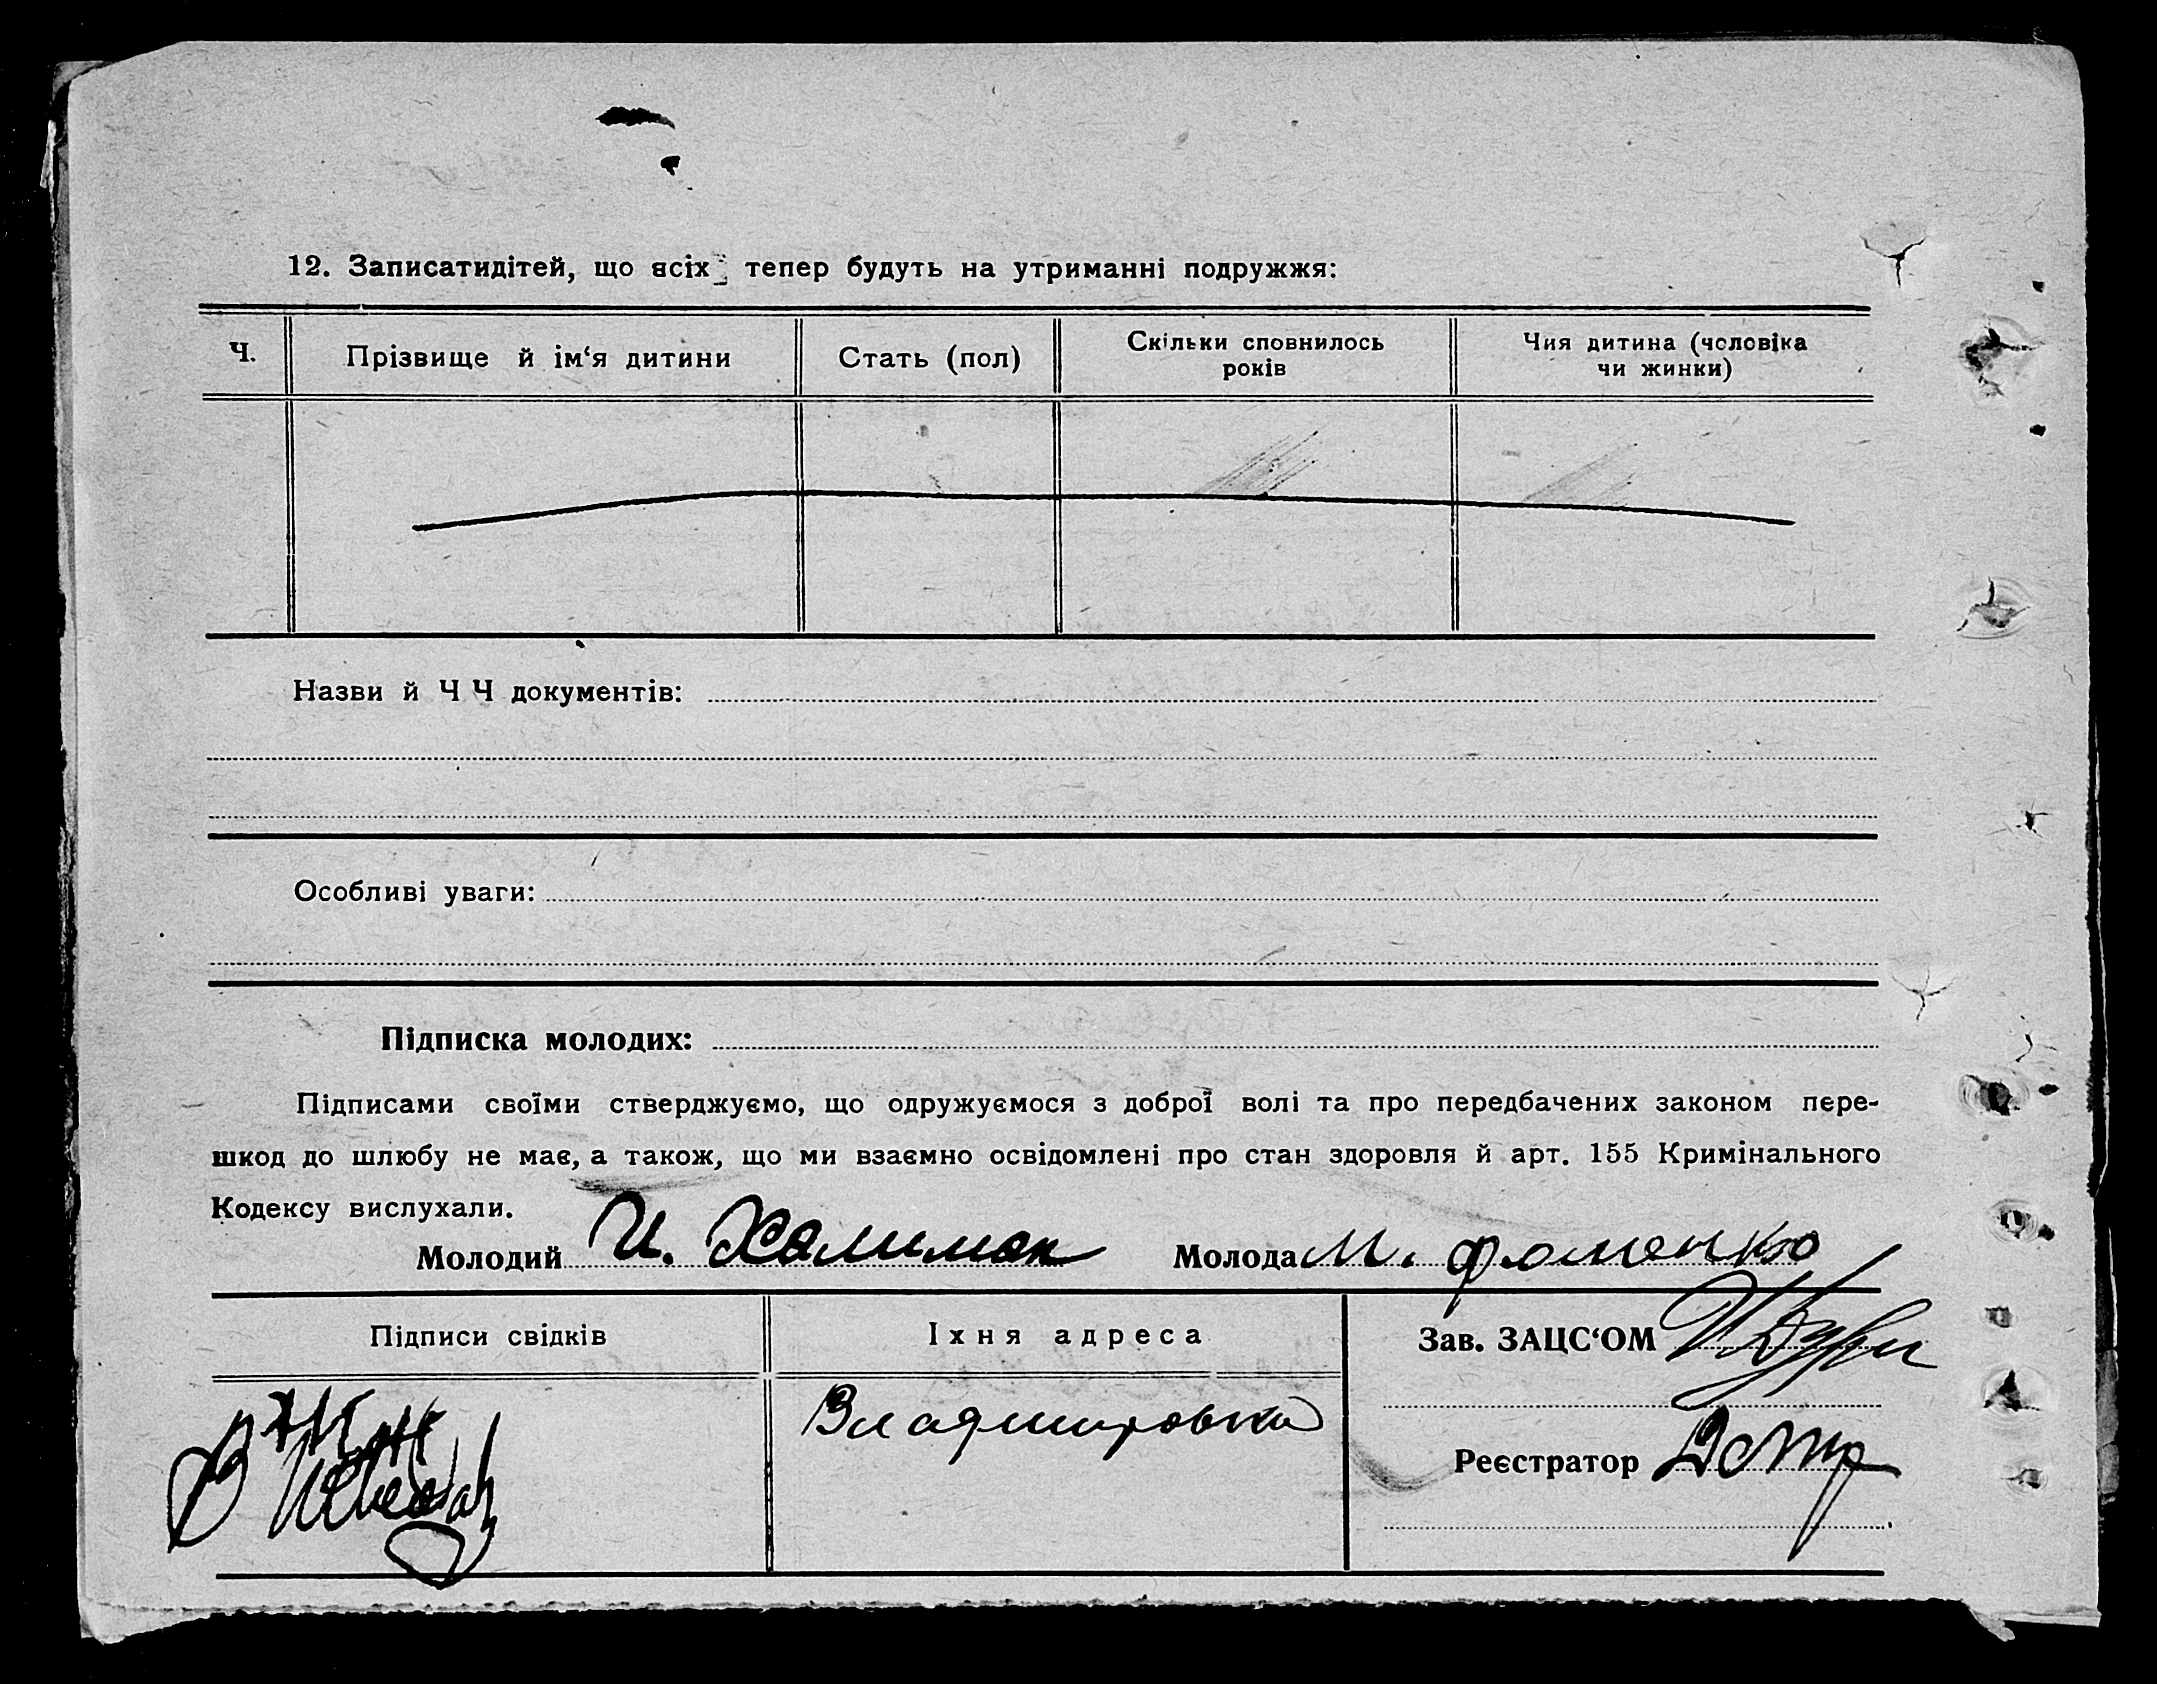 12. Записатидітей, що всіх тепер будуть на утриманні подружжя:
Ч.
Прізвище й ім‘я дитини
Стать (пол)
Скільки сповнилось
років
Чия дитина (чоловіка
чи жинки)
Назви й Ч Ч документів:
Особливі уваги:
Підписка молодих:
Підписами своїми стверджуємо, що одружуємося з доброї волі та про передбачених законом пере-
шкод до шлюбу не має, а також, що ми взаємно освідомлені про стан здоровля й арт. 155 Кримінального
Кодексу вислухали.
Молодий И. Халиман Молода М. Фоменко
Підписи свідків
Іхня адреса
Зав. ЗАЦС‘ОМ
Владимировка
Реєстратор